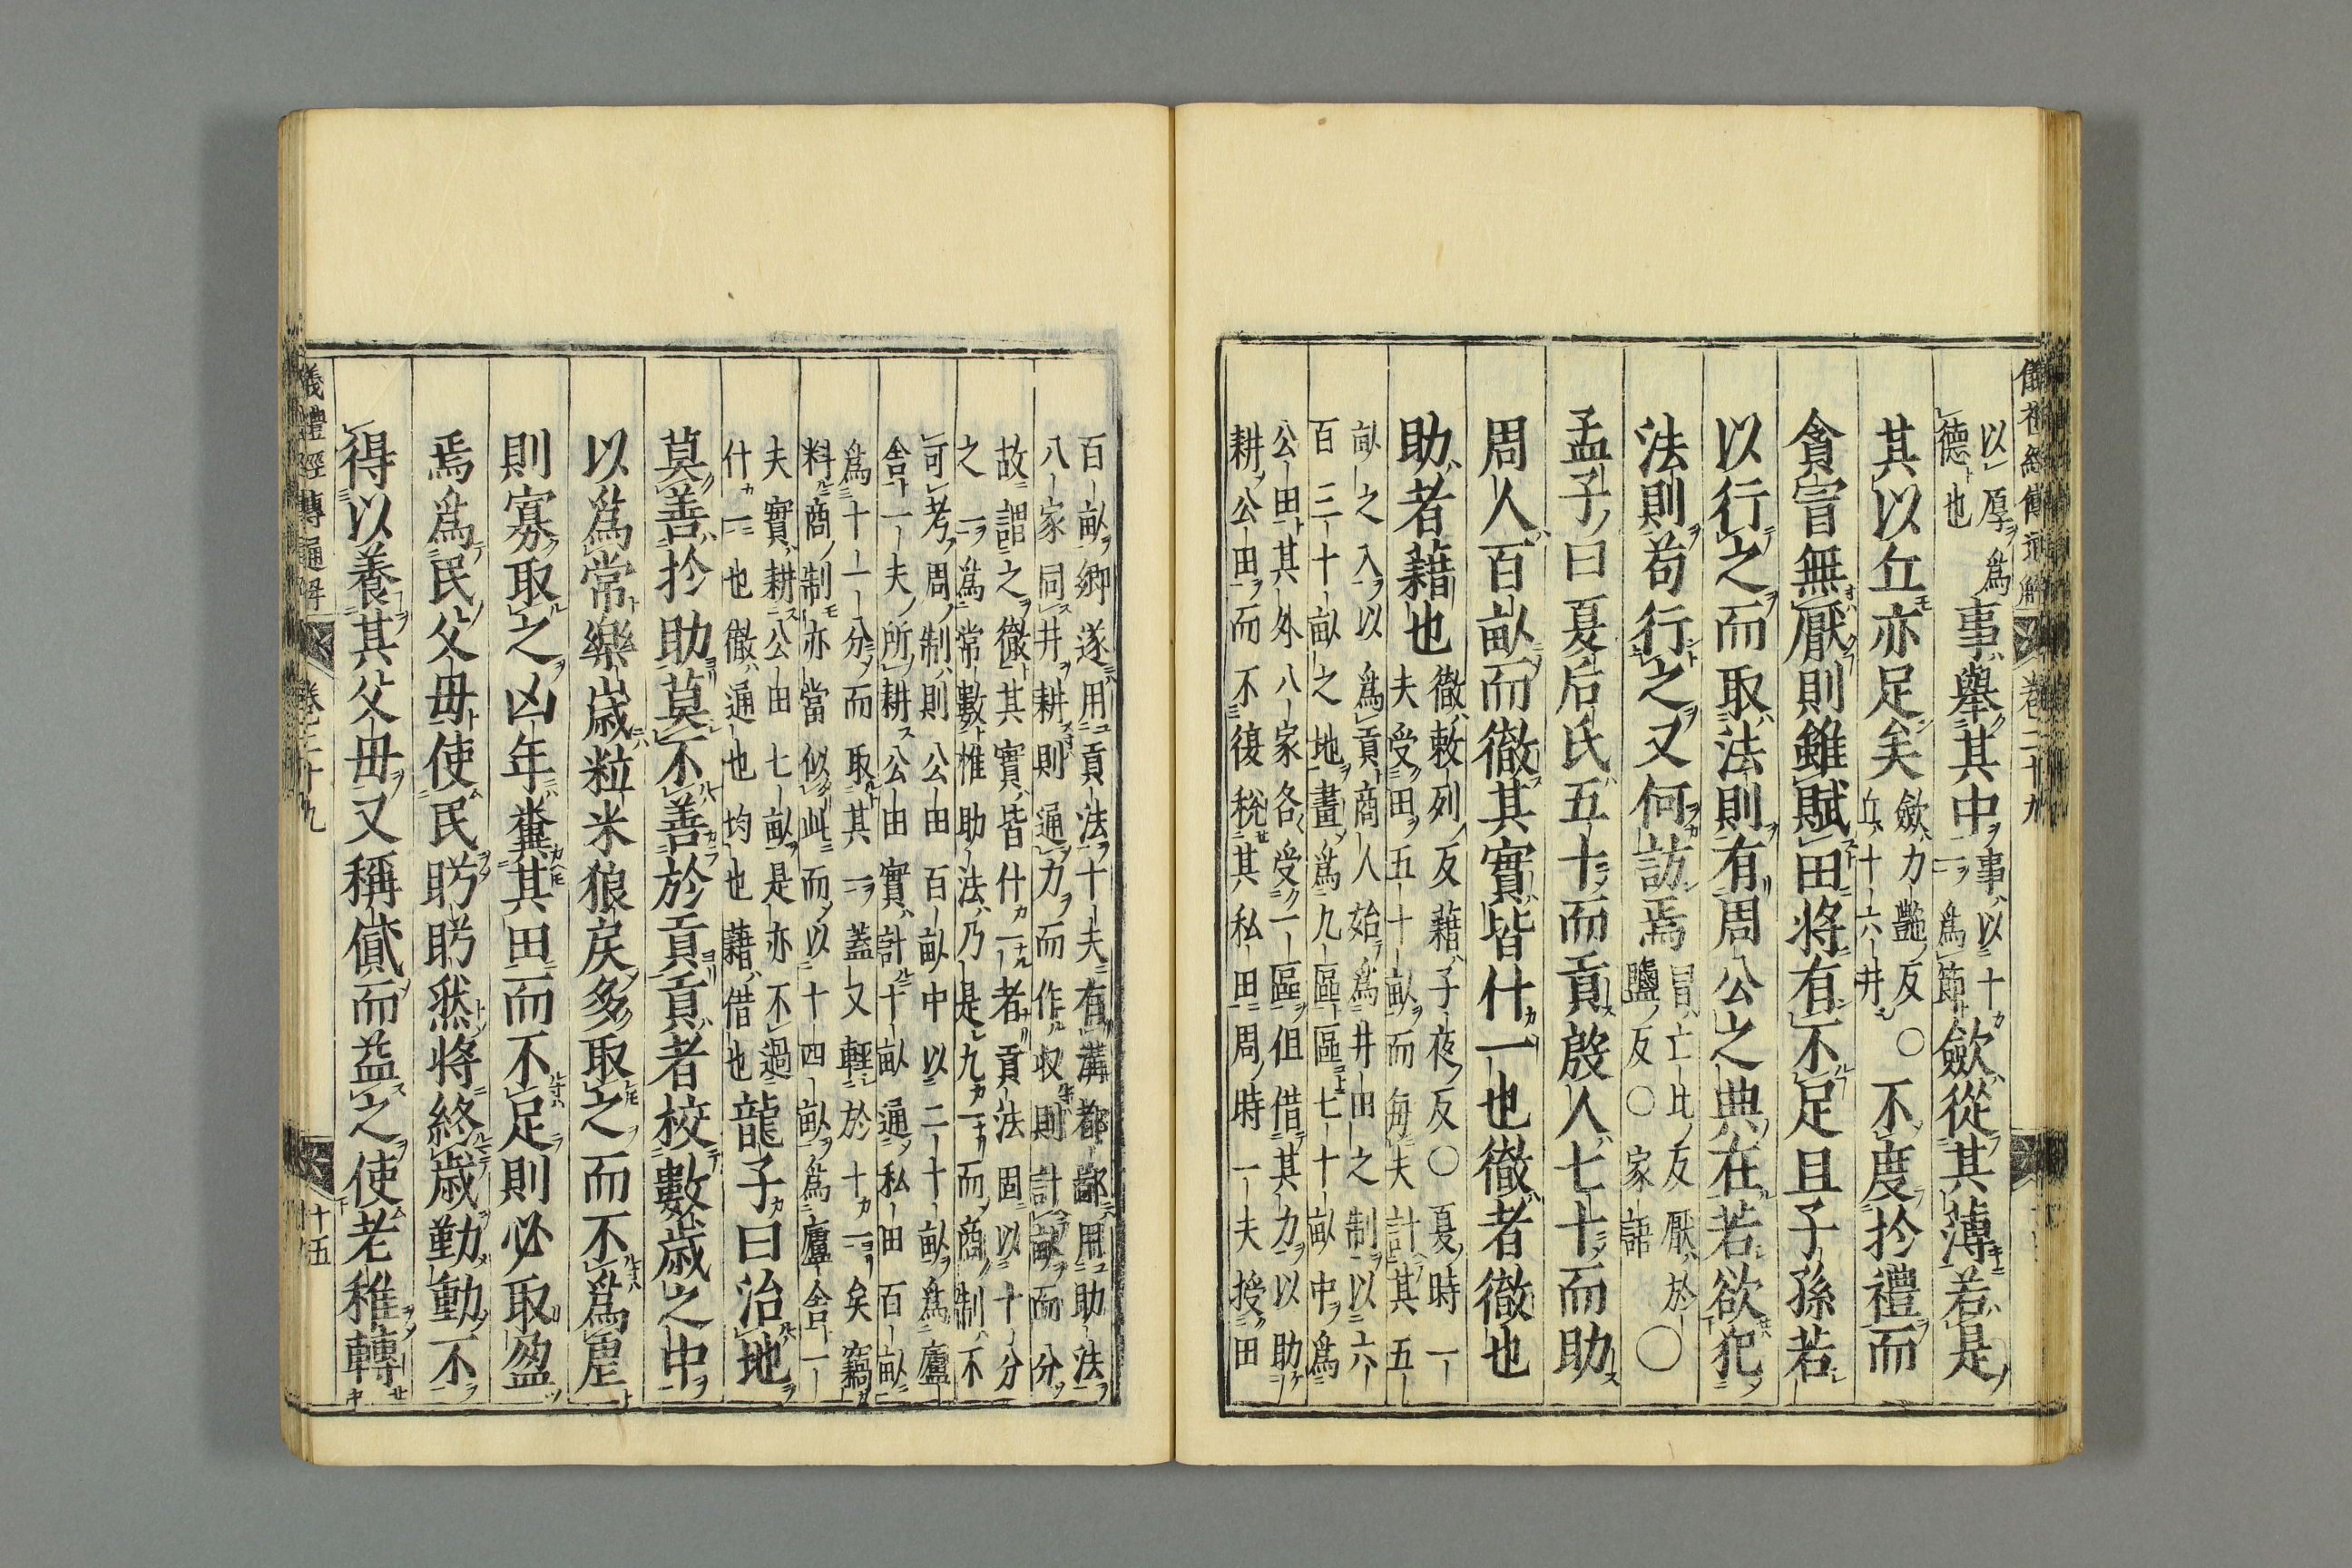 儀禮經傳通解 卷二十九
以厚爲
德也
事舉其中
事以十
一爲節
歛從其薄若是
其以丘亦足矣
歛力豔反○
丘十六井
不度於禮而
貪冒無厭則雖賦田將有不足且子孫若
以行之而取法則有周公之典在若欲犯
法則苟行之又何訪焉
冒亡比反厭於
鹽反○家語
○
孟子曰夏后氏五十而貢殷人七十而助
周人百畝而徹其實皆什一也徹者徹也
助者藉也
徹敕列反藉子夜反○夏時一
夫受田五十畝而每夫計其五
畝之入以爲貢商人始爲井田之制以六
百三十畝之地畫爲九區區七十畝中爲
公田其外八家各受一區但借其力以助
耕公田而不復稅其私田周時一夫授田
百畝鄉遂用貢法十夫有溝都鄙用助法
八家同井耕則通力而作收則計畝而分
故謂之徹其實皆什一者貢法固以十分
之一爲常數惟助法乃是九一而商制不
可考周制則公田百畝中以二十畝爲廬
舍一夫所耕公田實計十畝通私田百畝
爲十一分而取其一蓋又輕於十一矣竊
料商制亦當似此而以十四畝爲廬舍一
夫實耕公田七畝是亦不過
什一也徹通也均也藉借也
龍子曰治地
莫善於助莫不善於貢貢者校數歲之中
以爲常樂歲粒米狼戾多取之而不爲虐
則寡取之凶年糞其田而不足則必取盈
焉爲民父母使民盻盻然將終歲勤動不
得以養其父母又稱貸而益之使老稚轉
儀禮經傳通解 卷二十九 十五